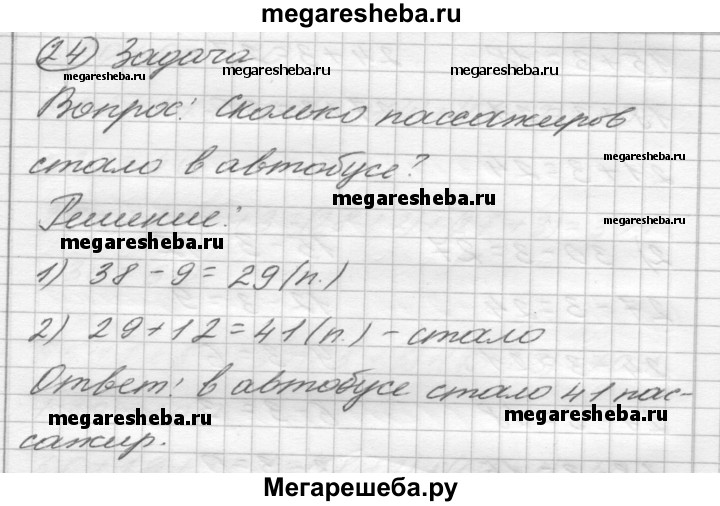 megaresheba.ru
24) Задача
megaresheba.ru megaresheba.ru megaresheba.ru
Вопрос: Сколько пассажиров
megaresheba.ru
стало в автобусе?
megaresheba.ru
Решение:
megaresheba.ru
megaresheba.ru
1) 38 - 9 = 29 (п.)
2) 29 + 12 = 41 (п.) - стало
Ответ: в автобусе стало 41 пас-
megaresheba.ru megaresheba.ru
сажир.
Мегарешеба.ру